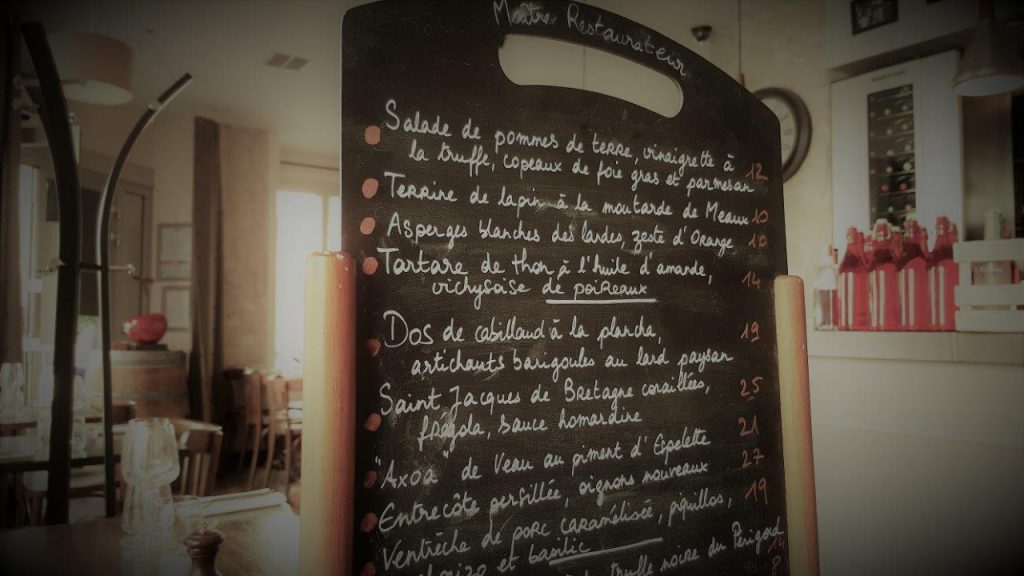 Maître Restaurateur
Salade de pommes de terre, vinaigrette à
la truffe, copeaux de foie gras et parmesan 12
Terrine de lapin à la moutarde de Meaux 10
Asperges blanches des landes, zeste d'Orange 10
Tartare de thon à l'huile d'amande,
vichysoise de poireaux 14
Dos de cabillaud à la plancha, 19
artichauts barigoules au lard paysan
Saint Jacques de Bretagne coraillées, 25
fregola, sauce homardine
"Axoa" de Veau au piment d'Espelette 21
Entrecôte persillée, oignons nouveaux 27
Ventrèche de porc caramélisée, piquillos, 19
et basilic
truffe noire du Périgord